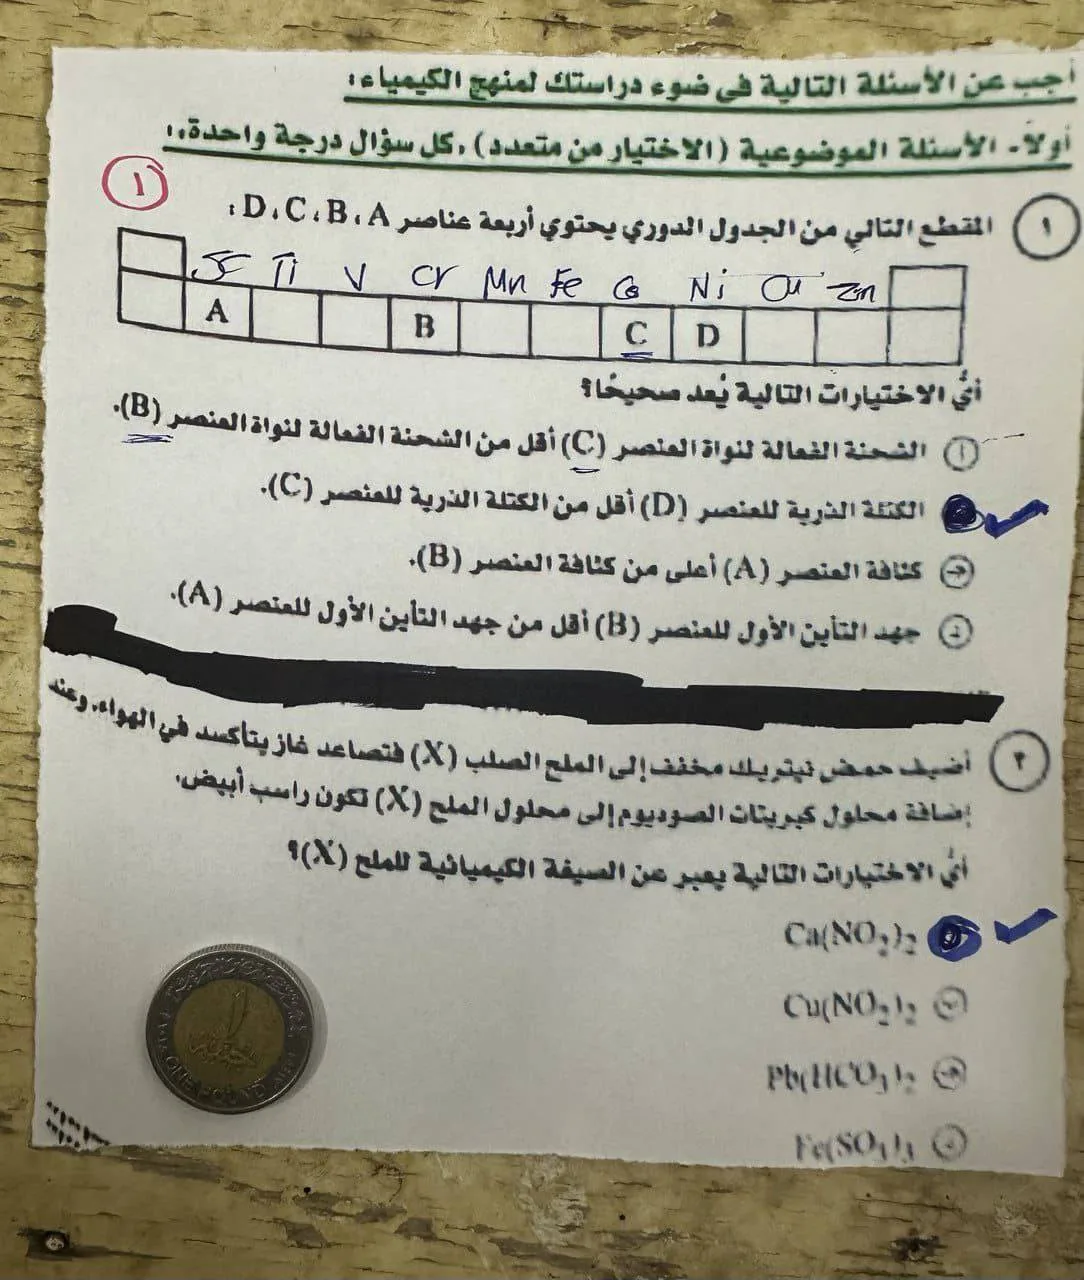 أجب عن الأسئلة التالية في ضوء دراستك لمنهج الكيمياء:
أولاً- الأسئلة الموضوعية (الاختيار من متعدد)، كل سؤال درجة واحدة،:
١
١ المقطع التالي من الجدول الدوري يحتوي أربعة عناصر D، C، B، A:
Sc Ti V Cr Mn Fe Co Ni Cu Zn
A B C D
أيُّ الاختيارات التالية يُعد صحيحًا؟
أ الشحنة الفعالة لنواة العنصر (C) أقل من الشحنة الفعالة لنواة العنصر (B).
الكتلة الذرية للعنصر (D) أقل من الكتلة الذرية للعنصر (C).
ج كثافة العنصر (A) أعلى من كثافة العنصر (B).
د جهد التأين الأول للعنصر (B) أقل من جهد التأين الأول للعنصر (A).
٢ أضيف حمض نيتريك مخفف إلى الملح الصلب (X) فتصاعد غاز يتأكسد في الهواء، وعند
إضافة محلول كبريتات الصوديوم إلى محلول الملح (X) تكون راسب أبيض،
أيُّ الاختيارات التالية يعبر عن الصيغة الكيميائية للملح (X)؟
Ca(NO2)2
Cu(NO2)2 ب
Pb(HCO3)2 ج
د
١
ONE POUND